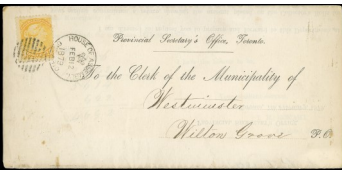 HOUSE OF ASSEMBLY
FEB
Provincial Secretary's Office, Toronto.
To the Clerk of the Municipality of
Westminster
Wilton Grove P.O.